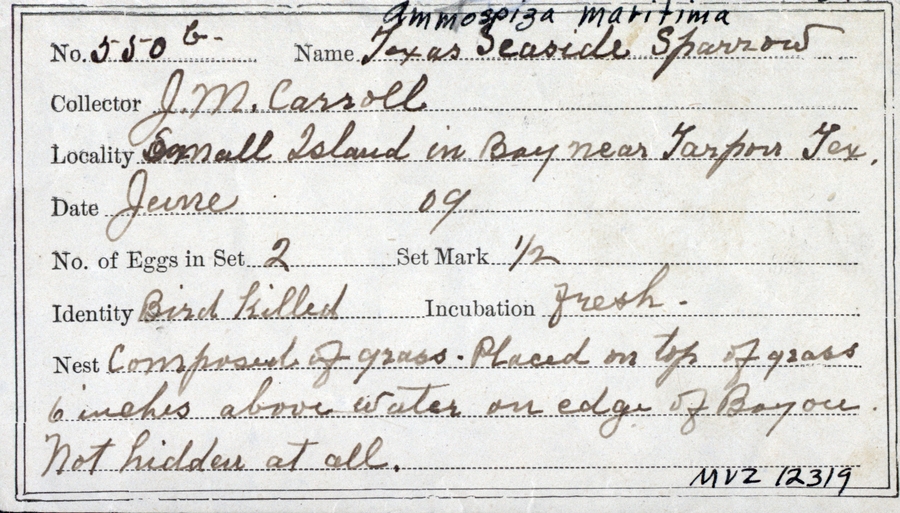 Ammospiza maritima
No. 550 b- Name Texas Seaside Sparrow
Collector J. M. Carroll
Locality Small Island in Bay near Tarpon Tex.
Date June 09
No. of Eggs in Set 2 Set Mark 1/2
Identity Bird Killed Incubation fresh.
Nest Composed of grass. Placed on top of grass
6 inches above water on edge of Bayou.
Not hidden at all.
MVZ 12319